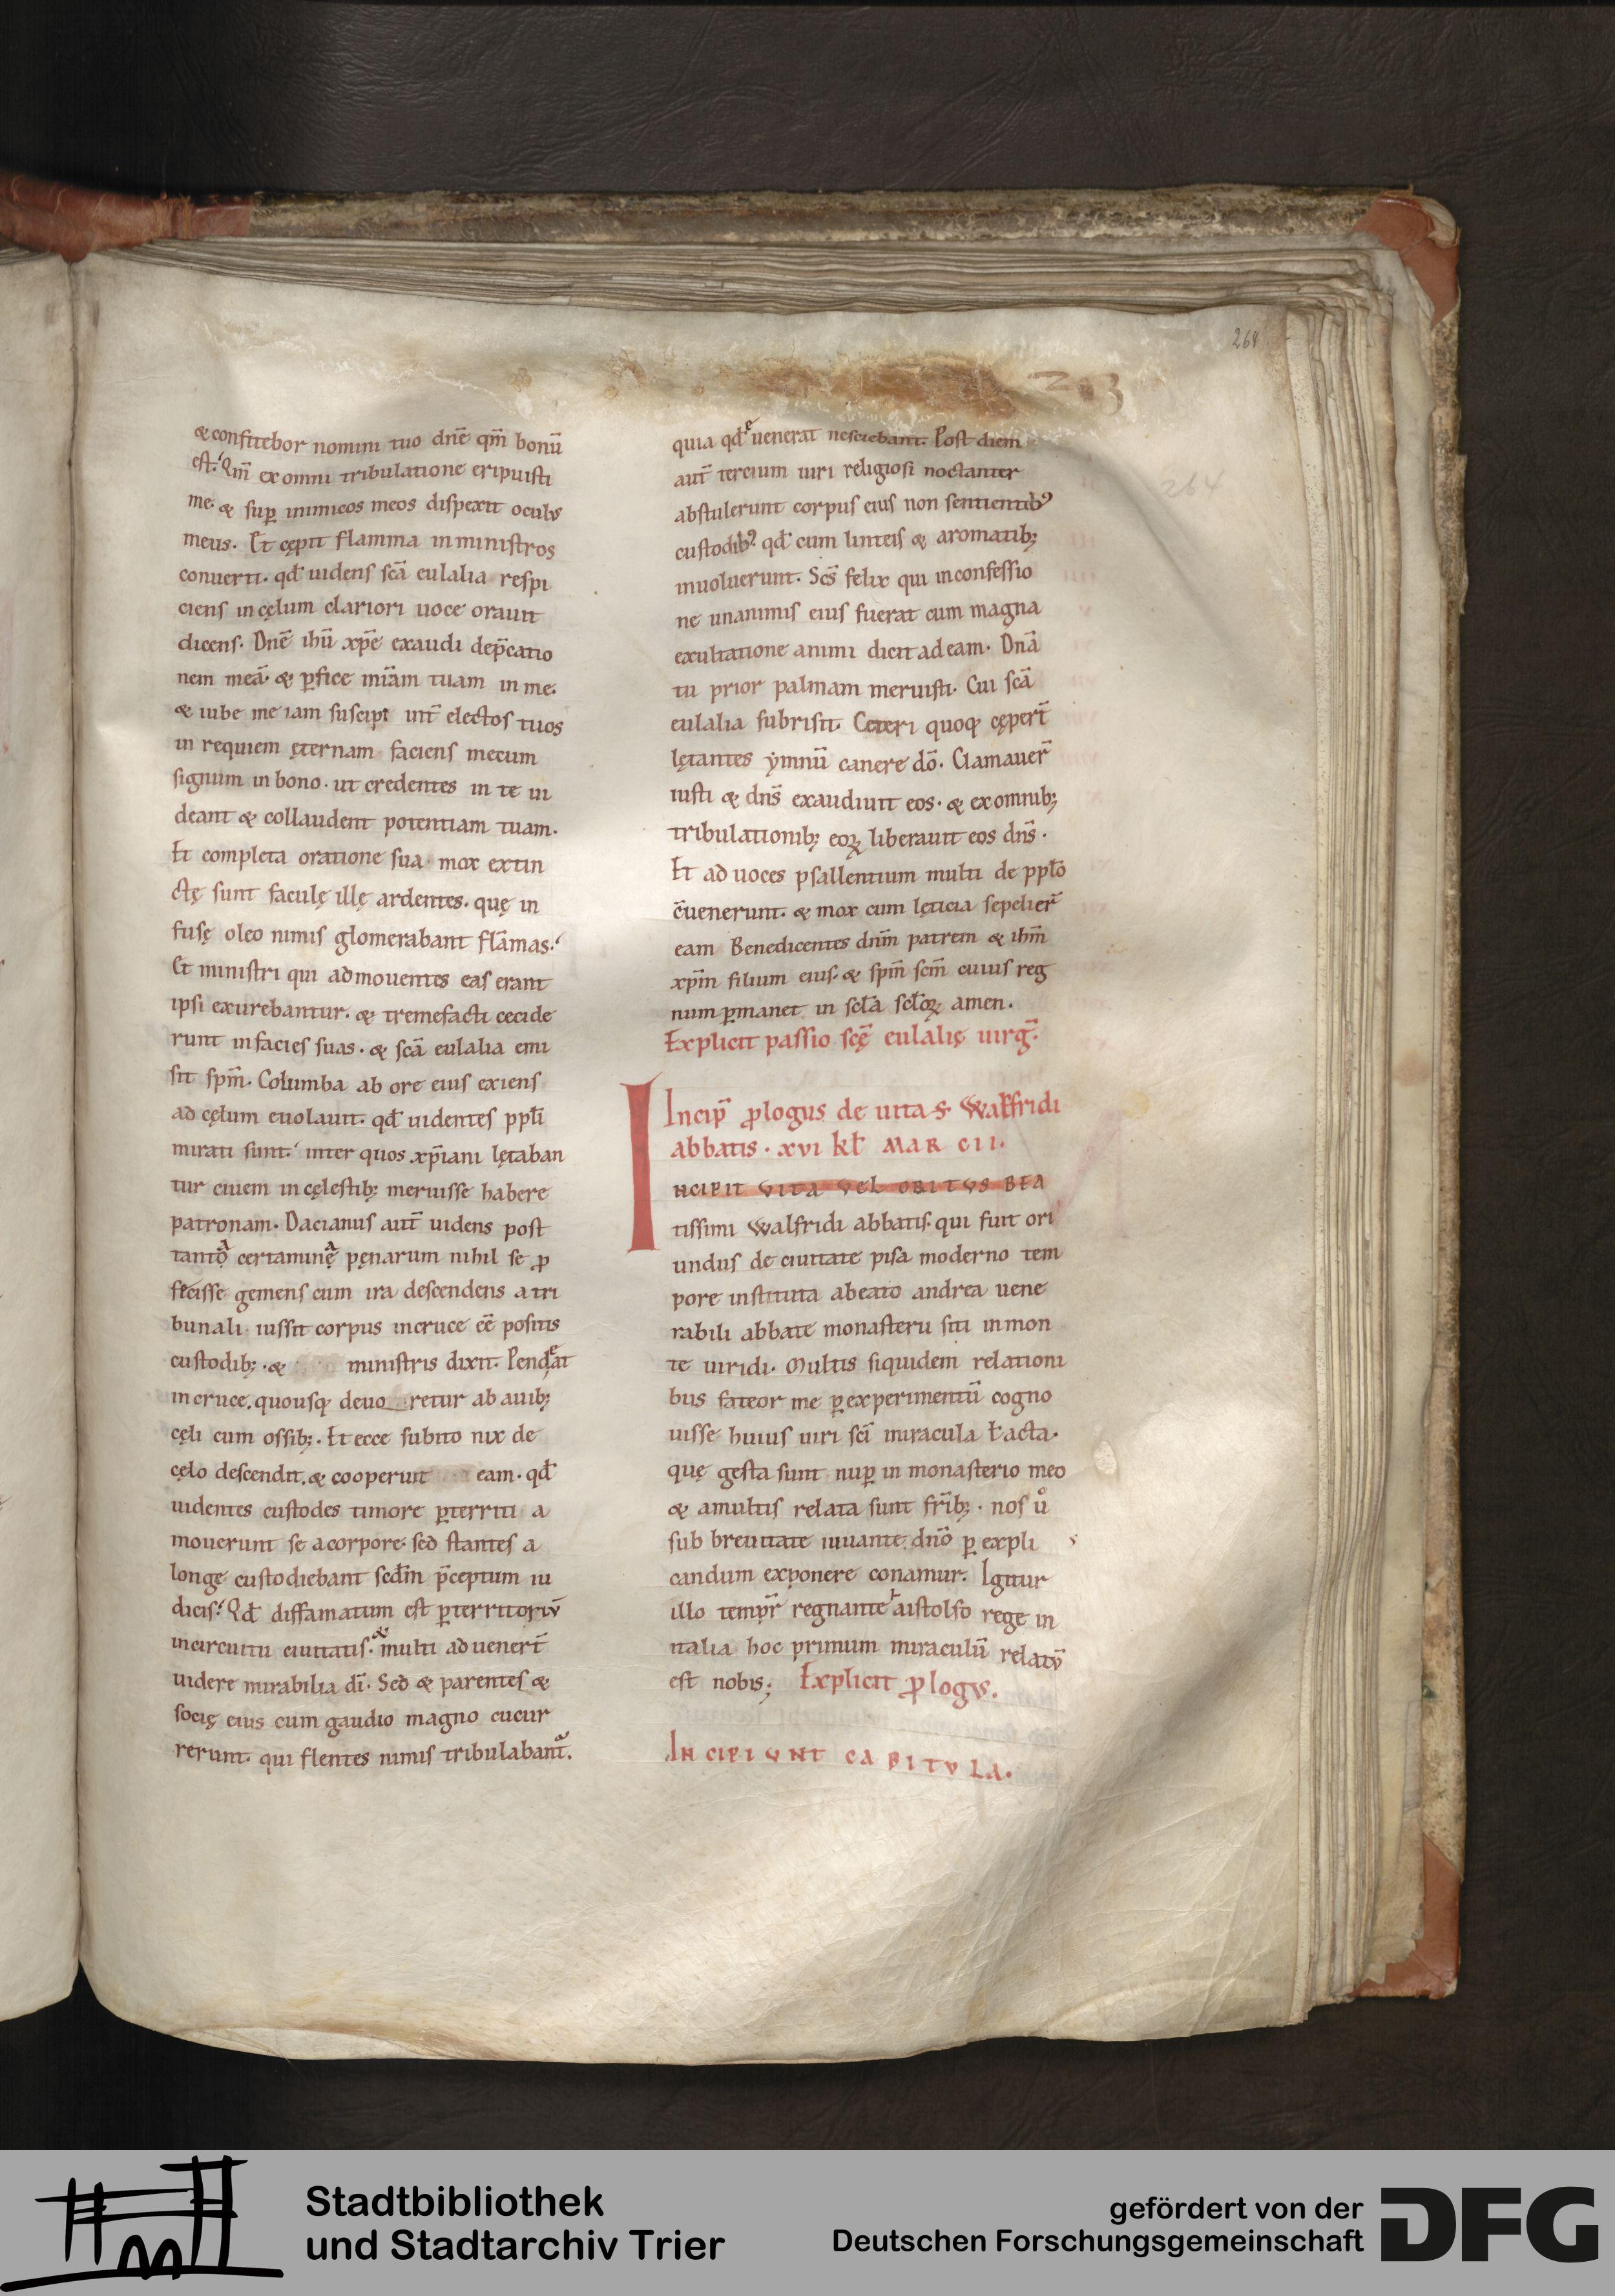 264
263
264
& confitebor nomini tuo dnē qm̄ bonū
est. Qm̄ ex omni tribulatione eripuisti
me. & suꝑ inimicos meos dispexit oculus
meus. Et cępit flamma in ministros
conuerti. qđ uidens scā eulalia respi
ciens in cęlum clariori uoce orauit
dicens. Dnē ihū xp̄e exaudi dep̄catio
nem meā. & ꝑfice miām tuam in me.
& iube me iam suscipi int̄ electos tuos
in requiem ęternam faciens mecum
signum in bono. ut credentes in te ui
deant & collaudent potentiam tuam.
Et completa oratione sua mox extin
ctę sunt faculę illę ardentes. quę in
fusę oleo nimis glomerabant flāmas.
Et ministri qui admouentes eas erant
ipsi exurebantur. & tremefacti cecide
runt in facies suas. & scā eulalia emi
sit sp̄m. Columba ab ore eius exiens
ad cęlum euolauit. qđ uidentes pp̄li
mirati sunt. inter quos xp̄iani lętaban
tur ciuem in cęlestib; meruisse habere
patronam. Dacianus aut̄ uidens post
tantọa certaminęa pęnarum nihil se ꝓ
fecisse gemens cum ira descendens a tri
bunali iussit corpus in cruce eē positis
custodib;. & ministris dixit. Pendeat
in cruce. quousq; deuo retur ab auib;
cęli cum ossib;. Et ecce subito nix de
cęlo descendit. & cooperuit eam. qđ
uidentes custodes timore ꝑterriti a
mouerunt se a corpore. sed stantes a
longe custodiebant scđm p̄ceptum iu
dicis. Qđ diffamatum est ꝑ territoriū
in circuitu ciuitatis. & multi aduenert̄
uidere mirabilia dī. Sed & parentes &
socię eius cum gaudio magno cucur
rerunt. qui flentes nimis tribulabant̄.
quia qđ euenerat nesciebant. Post diem
aut̄ tercium uiri religiosi noctanter
abstulerunt corpus eius non sentientibꝰ
custodibꝰ. qđ cum linteis & aromatib;
inuoluerunt. Scs̄ felix qui in confessio
ne unanimis eius fuerat cum magna
exultatione animi dicit ad eam. Dnā
tu prior palmam meruisti. Cui scā
eulalia subrisit. Ceteri quoq; cępert̄
lętantes ymnū canere dō. Clamauer̄
iusti & dns̄ exaudiuit eos. & ex omnib;
tribulationib; eoꝝ liberauit eos dns̄.
Et ad uoces psallentium multi de pp̄lo
c̄uenerunt. & mox cum lęticia sepelier̄
eam Benedicentes dnm̄ patrem & ihm̄
xp̄m filium eius. & sp̄m scm̄ cuius reg
num ꝑmanet in scl̄a scl̄oꝝ amen.
Explicit passio scę̄ eulalię uirḡ.
Incip̄ ꝓlogus de uita S. Walfridi
abbatis. xvi kł MARCII.
NCIPIT VITA VEL OBITVS BEA
tissimi Walfridi abbatis. qui fuit ori
undus de ciuitate pisa moderno tem
pore instituta a beato andrea uene
rabili abbate monasterii siti in mon
te uiridi. Multis siquidem relationi
bus fateor me ꝑ experimentū cogno
uisse huius uiri sci miracula ł acta.
quę gesta sunt nuꝑ in monasterio meo
& a multis relata sunt fr̄ib;. nos uͦ
sub breuitate iuuante dnō ꝑ expli
candum exponere conamur. Igitur
illo tempr̄ regnante aistolfo rege in
italia hoc primum miraculū relatū
est nobis; Explicit ꝓlogvs.
INCIPIVNT CAPITVLA.
Stadtbibliothek
und Stadtarchiv Trier
gefördert von der
Deutschen Forschungsgemeinschaft
DFG